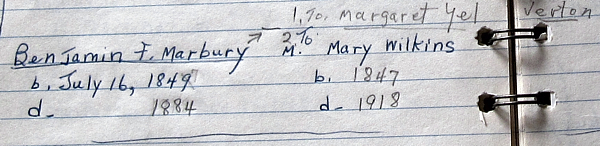 1. To. Margaret Yelverton
2 To
Benjamin F. Marbury M. Mary Wilkins
b. July 16, 1849 b. 1847
d- 1884 d- 1918